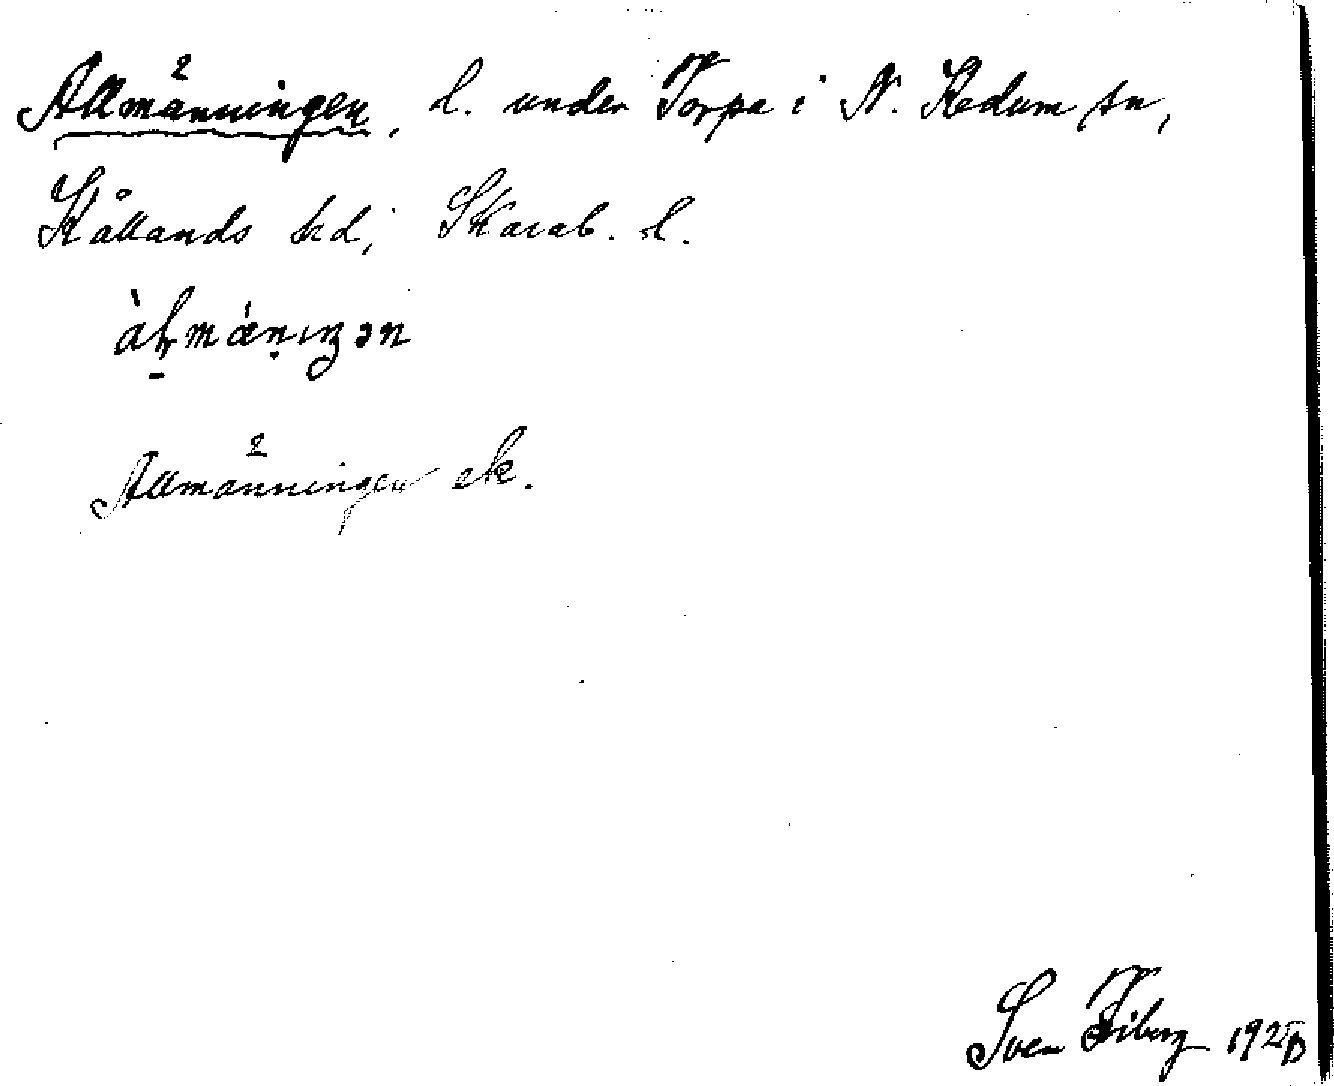 Allmänningen, l. under Torpa i N. Kedum sn,
Kållands hd, Skarab. l.
àḷmǽṇıŋən
Allmänningen ek.
Sven Fiberg